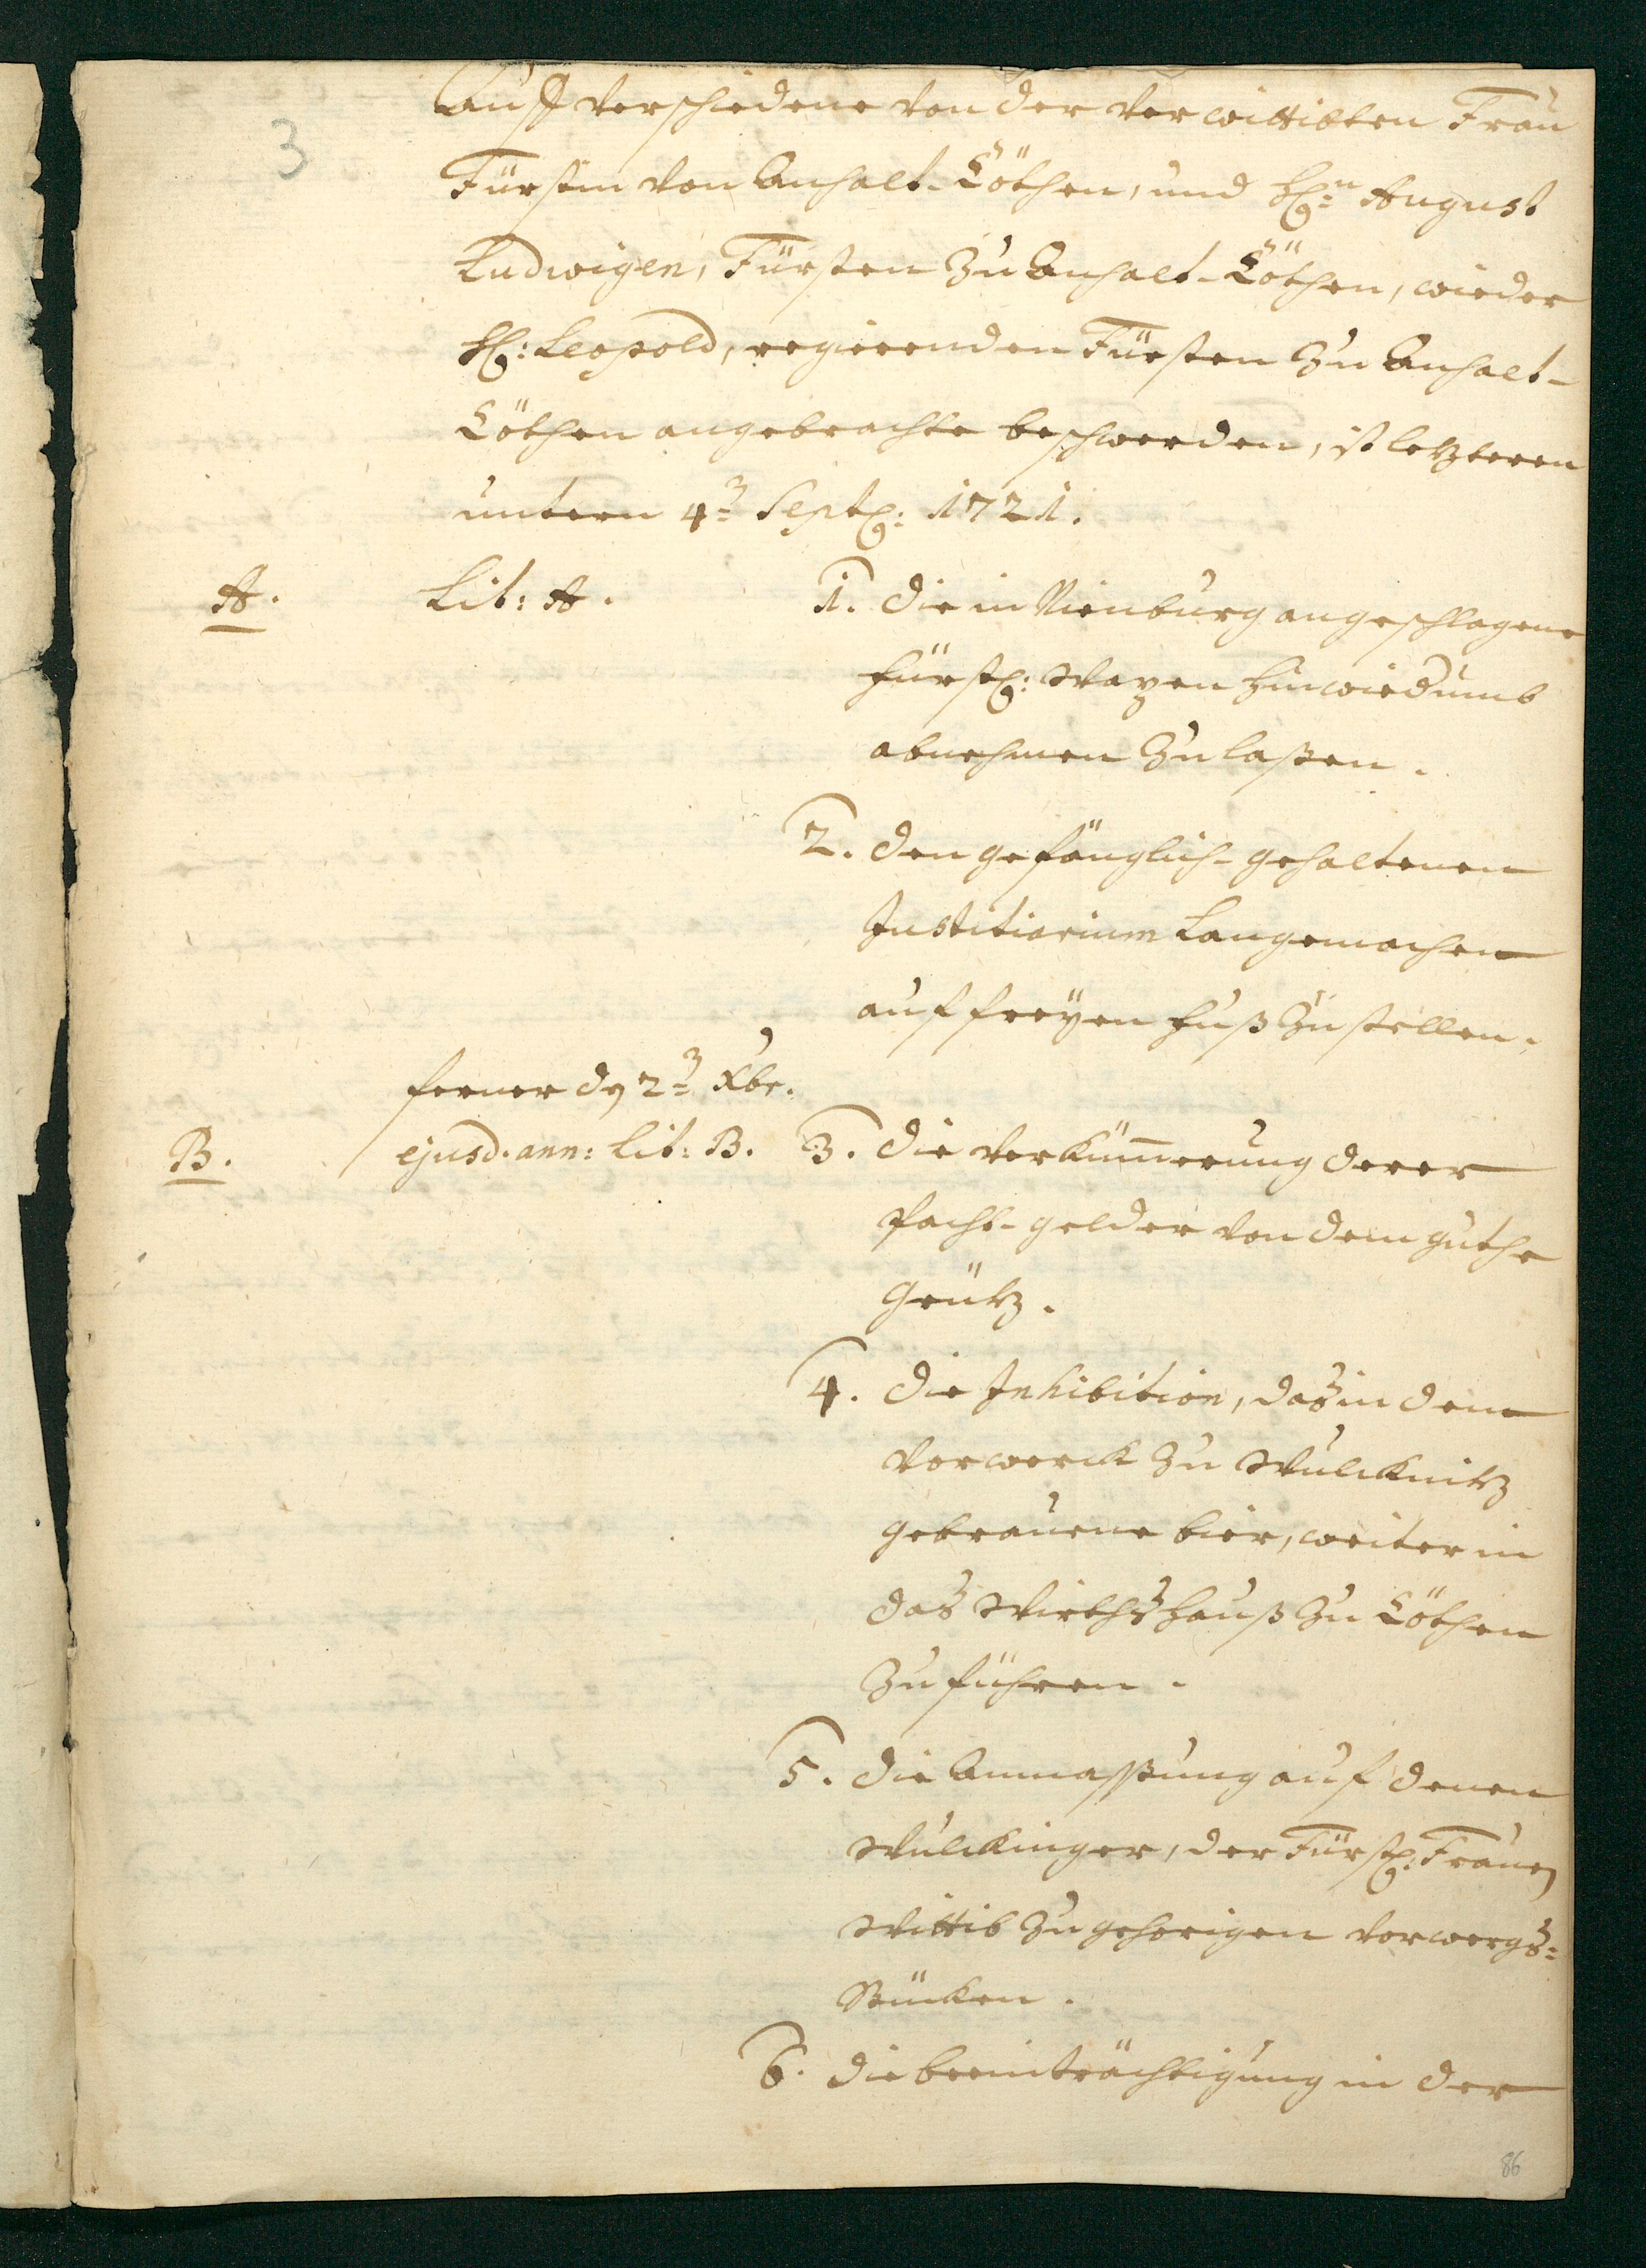 3
Auff verschiedene von der verwittibten Frau
Fürstin von Anhalt-Cöthen, und H: August
Ludwigen, Fürsten zu Anhalt-Cöthen, wieder
H: Leopold, regierenden Fürsten zu Anhalt-
Cöthen angebrachte beschwerden, ist letzteren
untern 4= Sept: 1721.
A. Lit: A. 1. die in Nienburg angeschlagene
fürstl: Wapen hinwiedumb
abnehmen zu laßen.
2. den gefänglich-gehaltenen
Justitiarium Langemachen
auf freyen fuß zu stellen.
ferner dn 2= Xbr.
B. ejusd. ann: Lit: B. 3. die verkümerung derer
pacht-gelder von dem guthe
Grütz.
4. die Inhibition, das in dem
vorwerck zu Wulcknitz
gebrauene bier, weiter in
das Wirthshauß zu Cöthen
zu führen.
5. die Anmassung auf denen
Wulckinger, der Fürstl: Frauen
Wittib zugehorigen vorwergs=
Stücken.
6. die beeinträchtigung in der
86